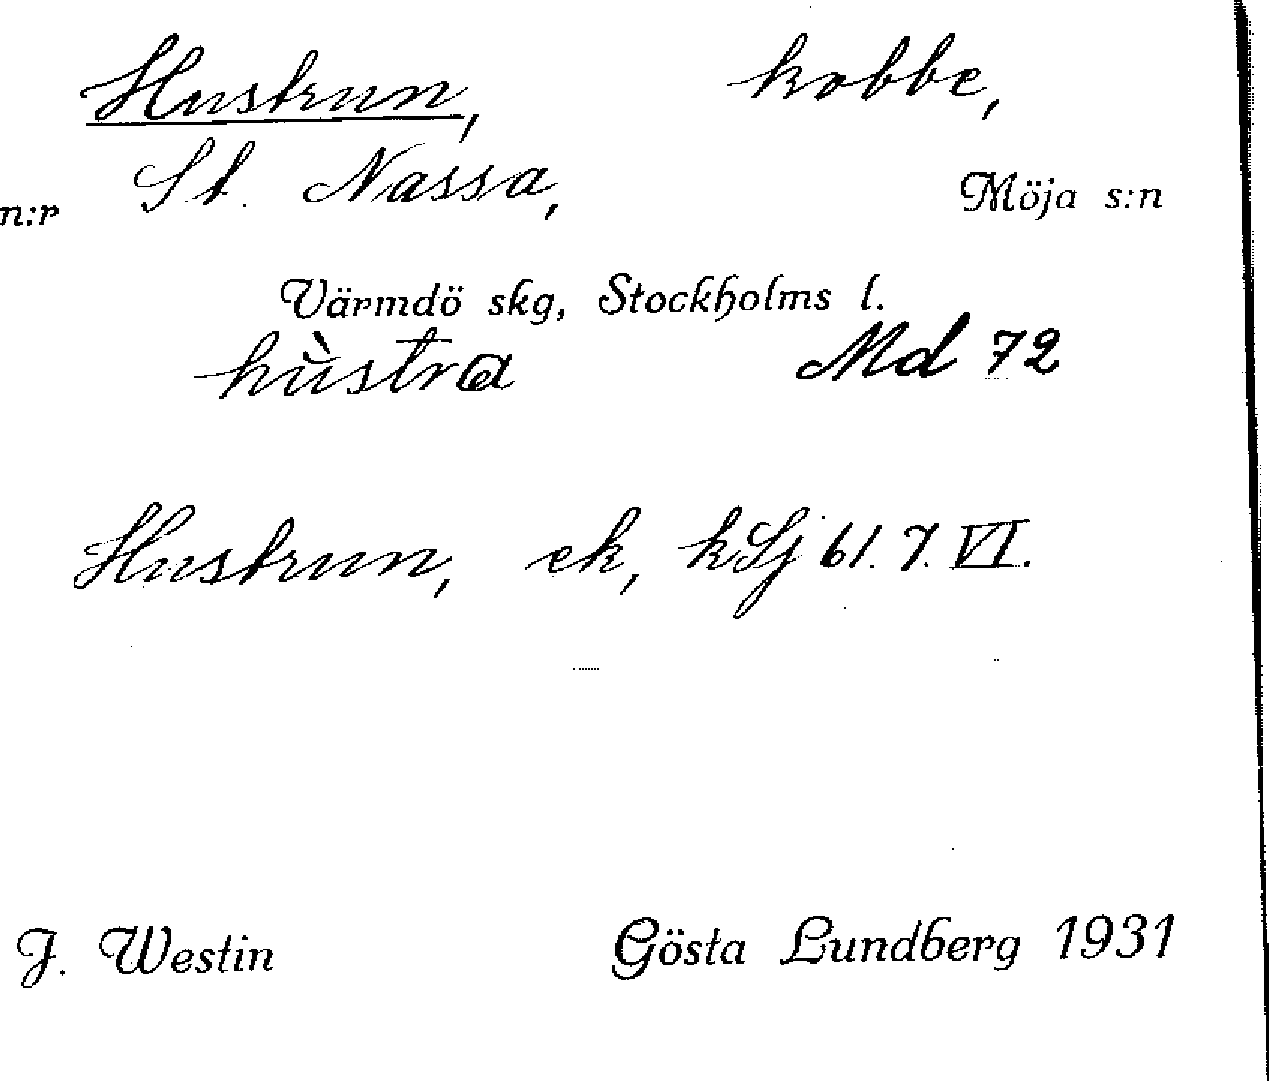 Hustrun, kobbe,
n:r St. Nassa, Möja s:n
Värmdö skg, Stockholms l.
hùstra Md 72
Hustrun, ek, kSj bl. 7. VI.
J. Westin Gösta Lundberg 1931